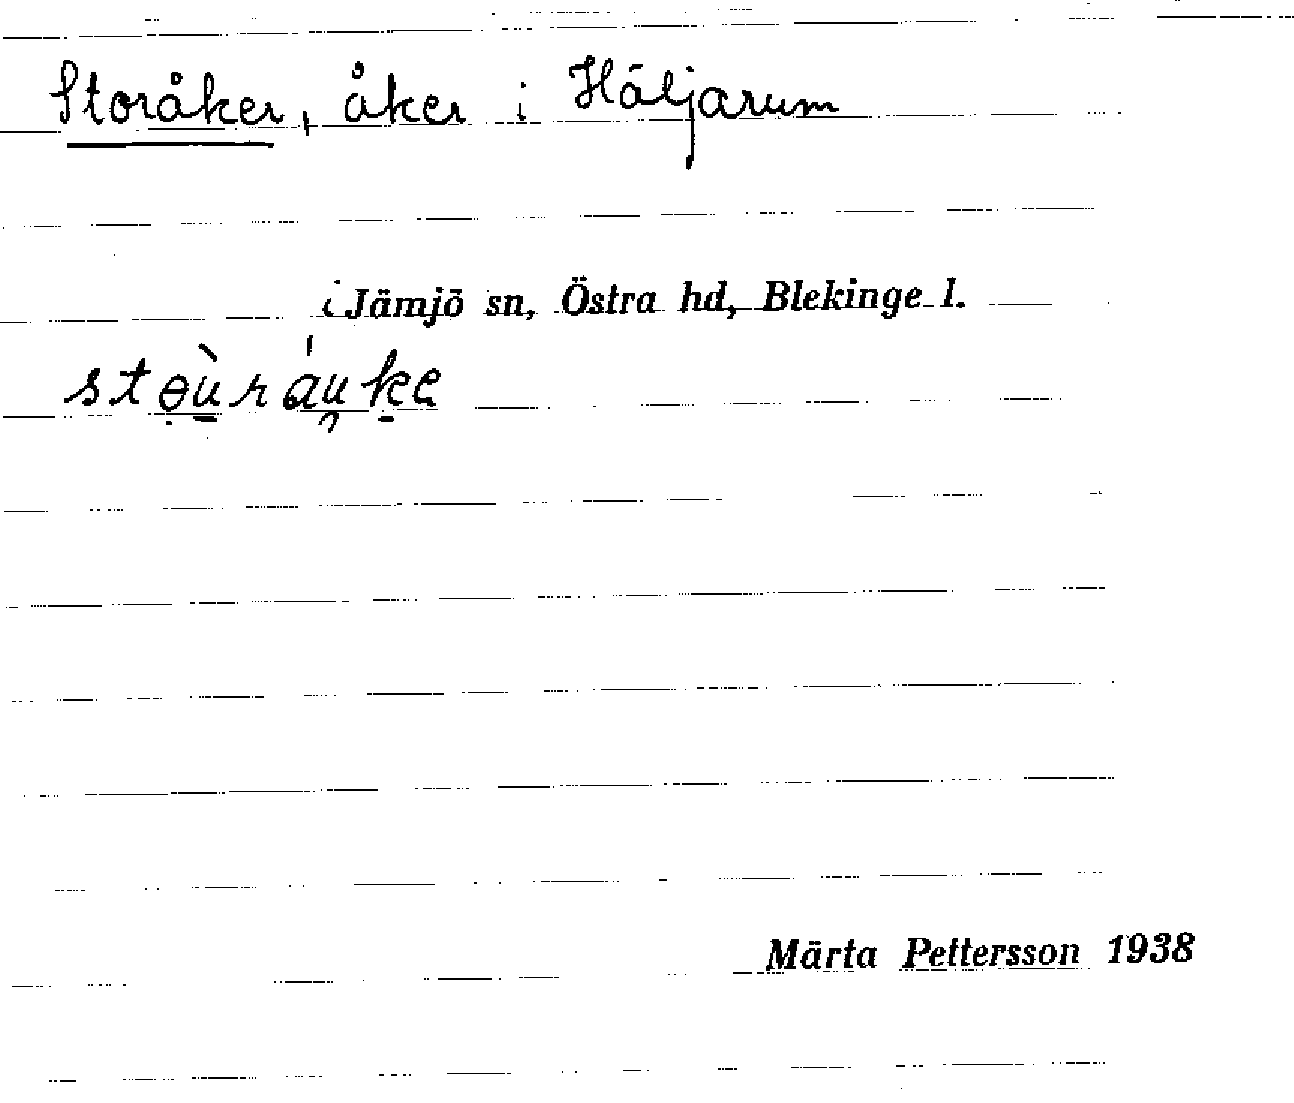 Storåker, åker i Häljarum
i Jämjö sn, Östra hd, Blekinge l.
stɵ̣ù̱ráu̯ḵə
Märta Pettersson 1938